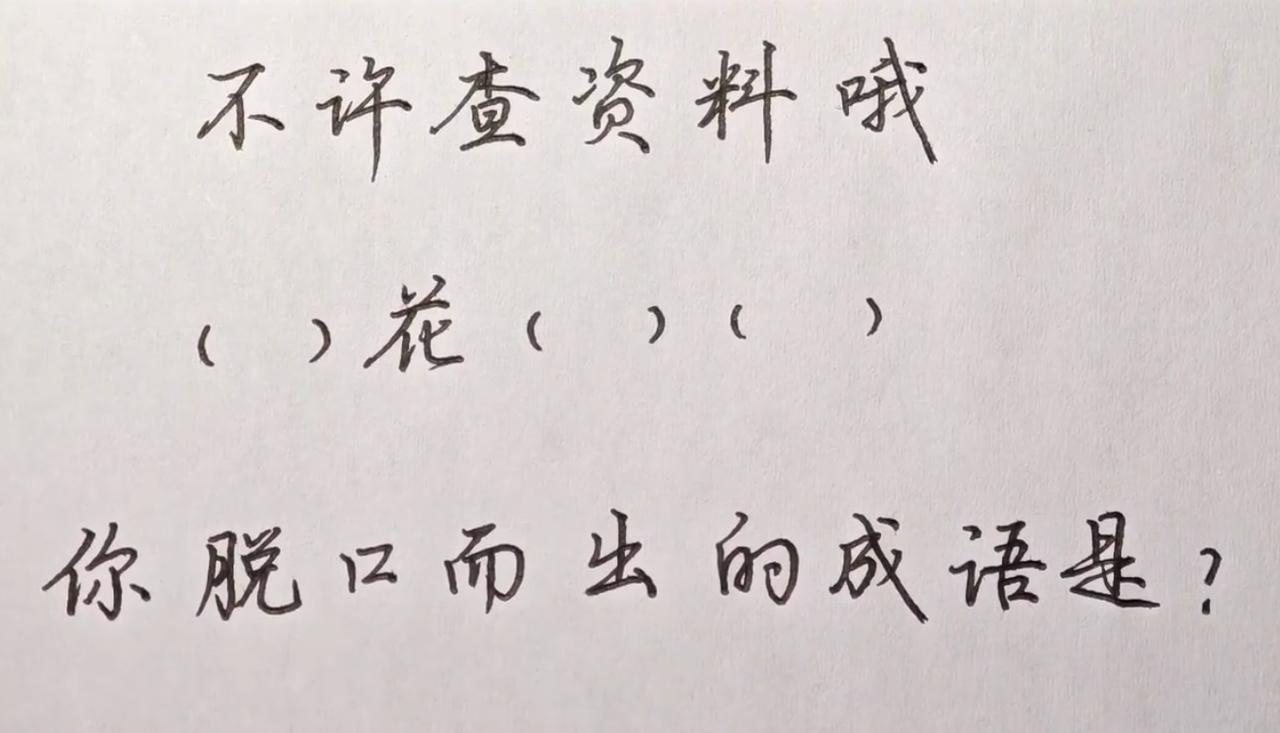 不许查资料哦
（ ）花（ ）（ ）
你脱口而出的成语是？